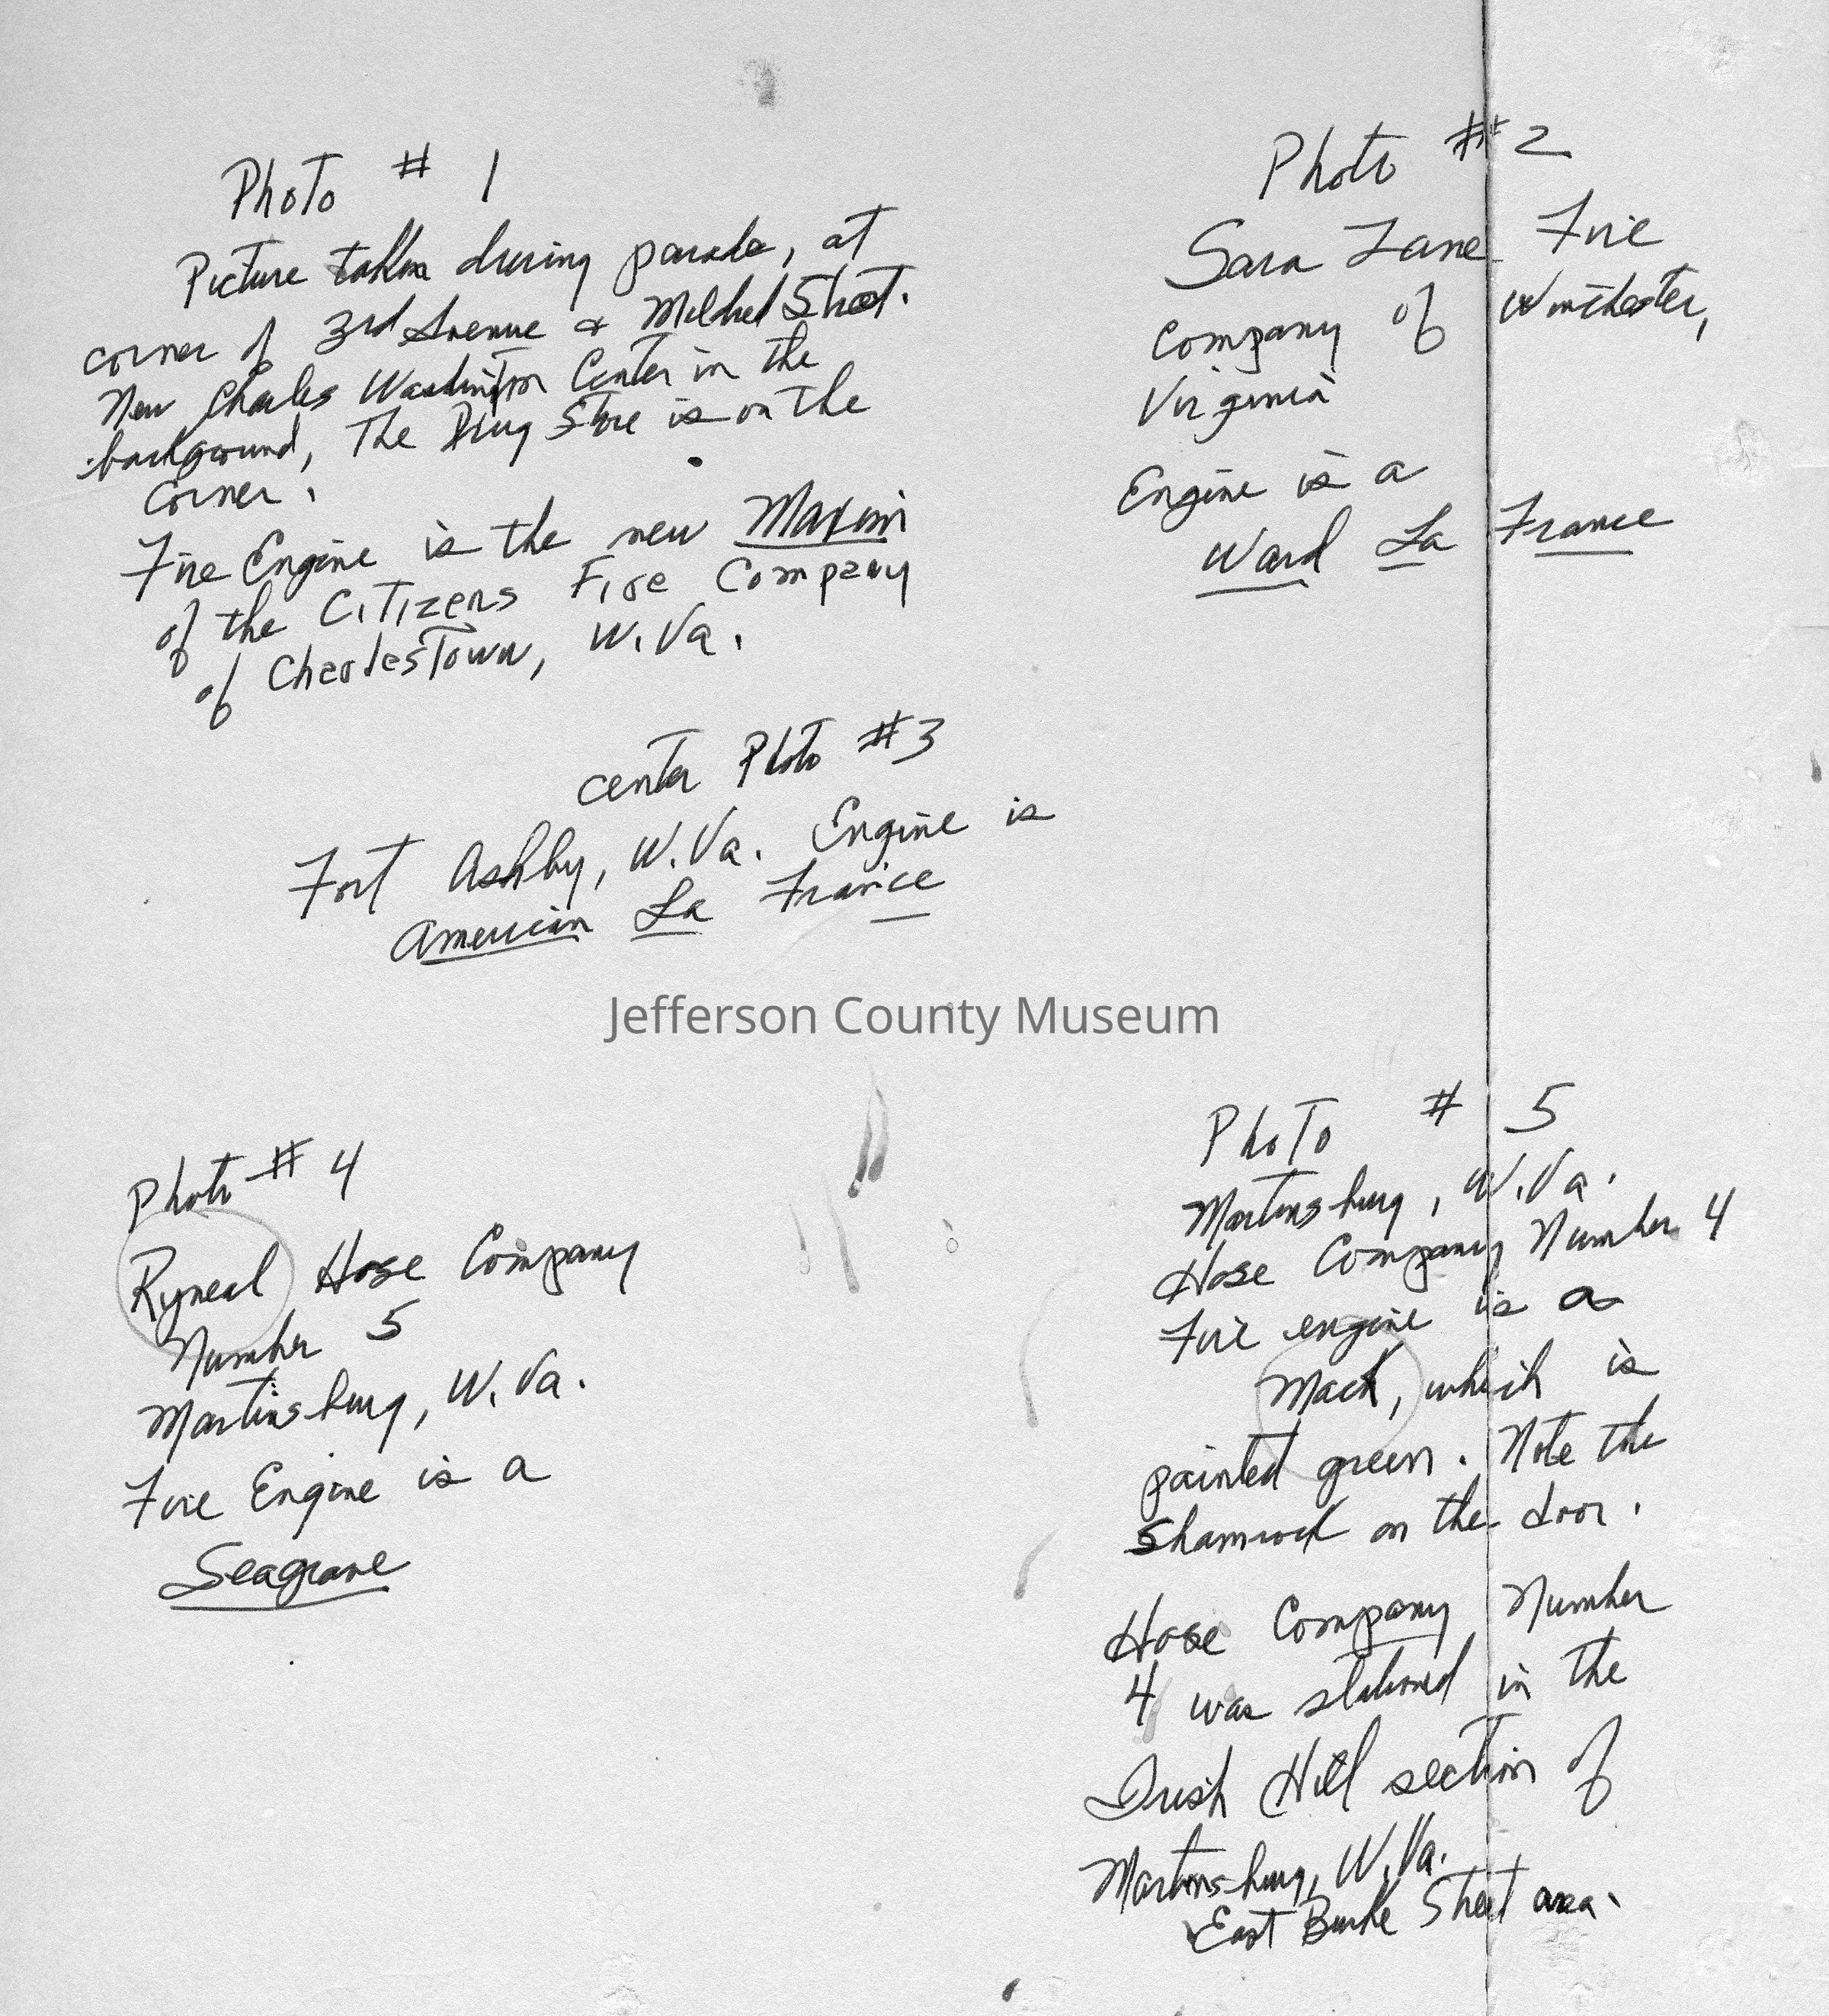 Photo # 1
Picture taken during parade, at
corner of 3rd Avenue & Mildred Street.
New Charles Washington Center in the
background, The Drug Store is on the
corner.
Fire Engine is the new Maxim
of the Citizens Fire Company
of CharlesTown, W. Va.
Photo # 2
Sara Zane Fire
Company of Winchester,
Virginia
Engine is a
Ward La France
center Photo #3
Fort Ashby, W. Va. Engine is
American La France
Jefferson County Museum
Photo # 4
Ryneal Hose Company
Number 5
Martinsburg, W. Va.
Fire Engine is a
Seagrave
Photo # 5
Martinsburg, W. Va.
Hose Company Number 4
Fire engine is a
Mack, which is
painted green. Note the
Shamrock on the door.
Hose Company Number
4 was stationed in the
Irish Hill section of
Martinsburg, W. Va.
East Burke Street area.